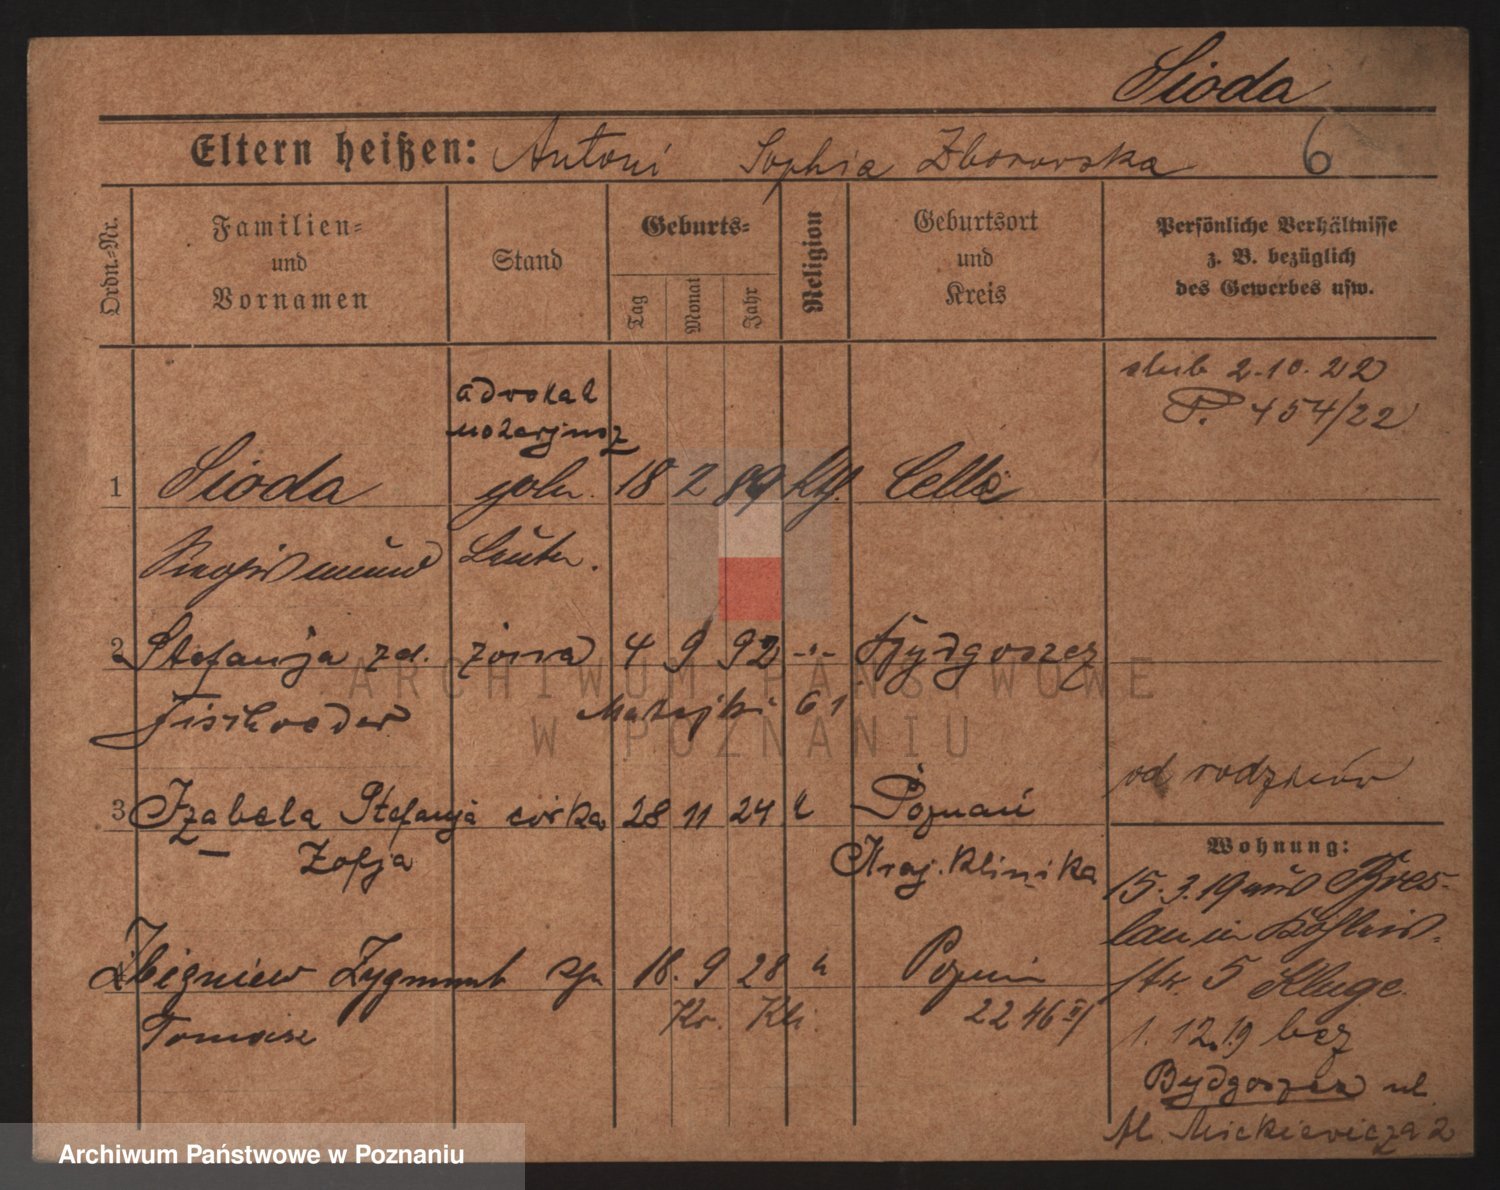 Sioda
Eltern heißen: Antoni Sophia Zborowska 6
Ordn.-Nr.
Familien-
und
Vornamen
Stand
Geburts-
Tag
Monat
Jahr
Religion
Geburtsort
und
Kreis
Persönliche Verhältnisse
z. B. bezüglich
des Gewerbes usw.
ślub 2.10.22
P. 454/22
adwokat
notarjusz
1 Sioda 18 2 89 Kth. Celle
Siegismund Leutn.
2 Stefanja zd. żona 4 9 92 -"- Bydgoszcz
Matejki 61
3 Izabela Stefanja córka 28 11 24 " Poznań
Zofja
Kraj. Klinika
od rodziców
Wohnung:
15.3.19 aus Bres-
lau
str. 5 Kluge.
1.12.19 bez
Bydgoszcz ul.
Al. Mickiewicza 2
4 Zbigniew Zygmunt syn 18. 9 28 " Poznań
Tomasz
Kr. Kli.
2246 II
ARCHIWUM PAŃSTWOWE
W POZNANIU
Archiwum Państwowe w Poznaniu